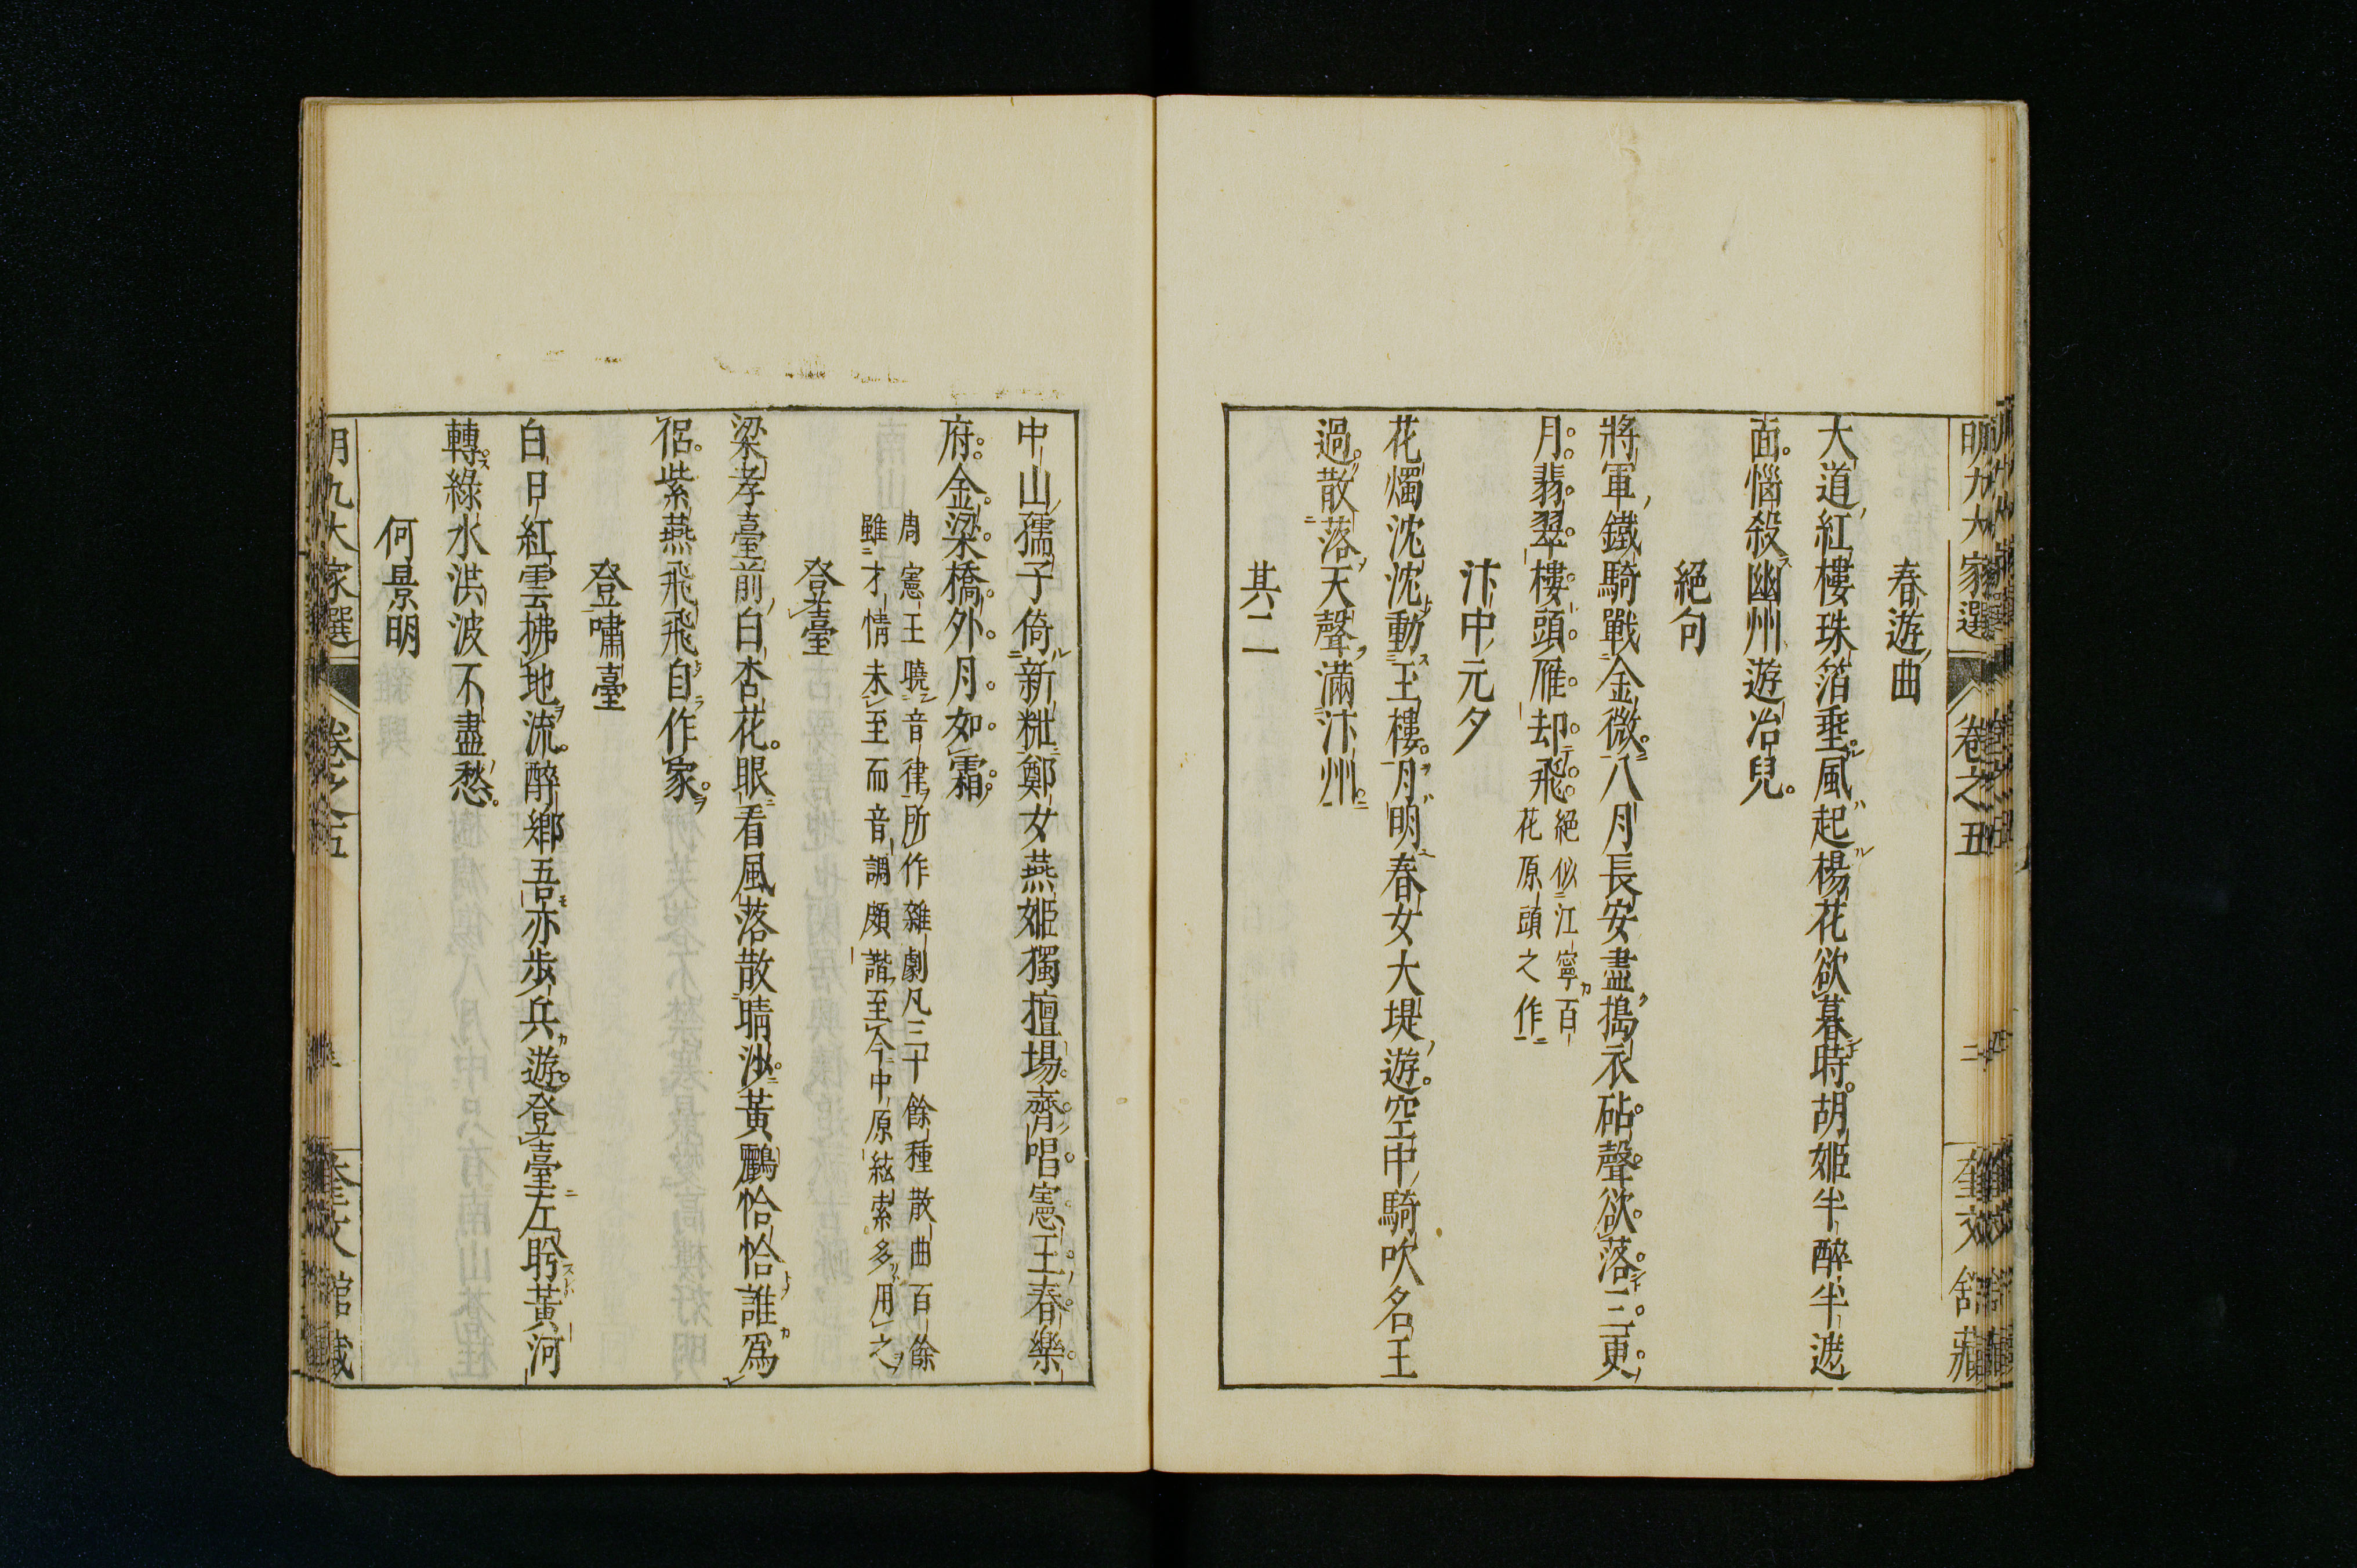 明九大家選 卷之五 二 奎文館藏
春遊曲
大道紅樓珠箔垂風起楊花欲暮時胡姬半醉半遮
面惱殺幽州遊冶兒
絕句
將軍鐵騎戰金微八月長安盡搗衣砧聲欲落三更
月翡翠樓頭雁却飛
絕似江寧百
花原頭之作
汴中元夕
花燭沈沈動玉樓月明春女大堤遊空中騎吹名王
過散落天聲滿汴州
其二
中山孺子倚新粃鄭女燕姬獨擅場齊唱憲王春樂
府金梁橋外月如霜
周憲王曉音律所作雜劇凡三十餘種散曲百餘
雖才情未至而音調頗諧至今中原絃索多用之
登臺
梁孝臺前白杏花眼看風落散晴沙黃鸝恰恰誰爲
侶紫燕飛飛自作家
登嘯臺
白日紅雲拂地流醉鄉吾亦步兵遊登臺左盻黃河
轉綠水洪波不盡愁
何景明
明九大家選 卷之五 奎文館藏